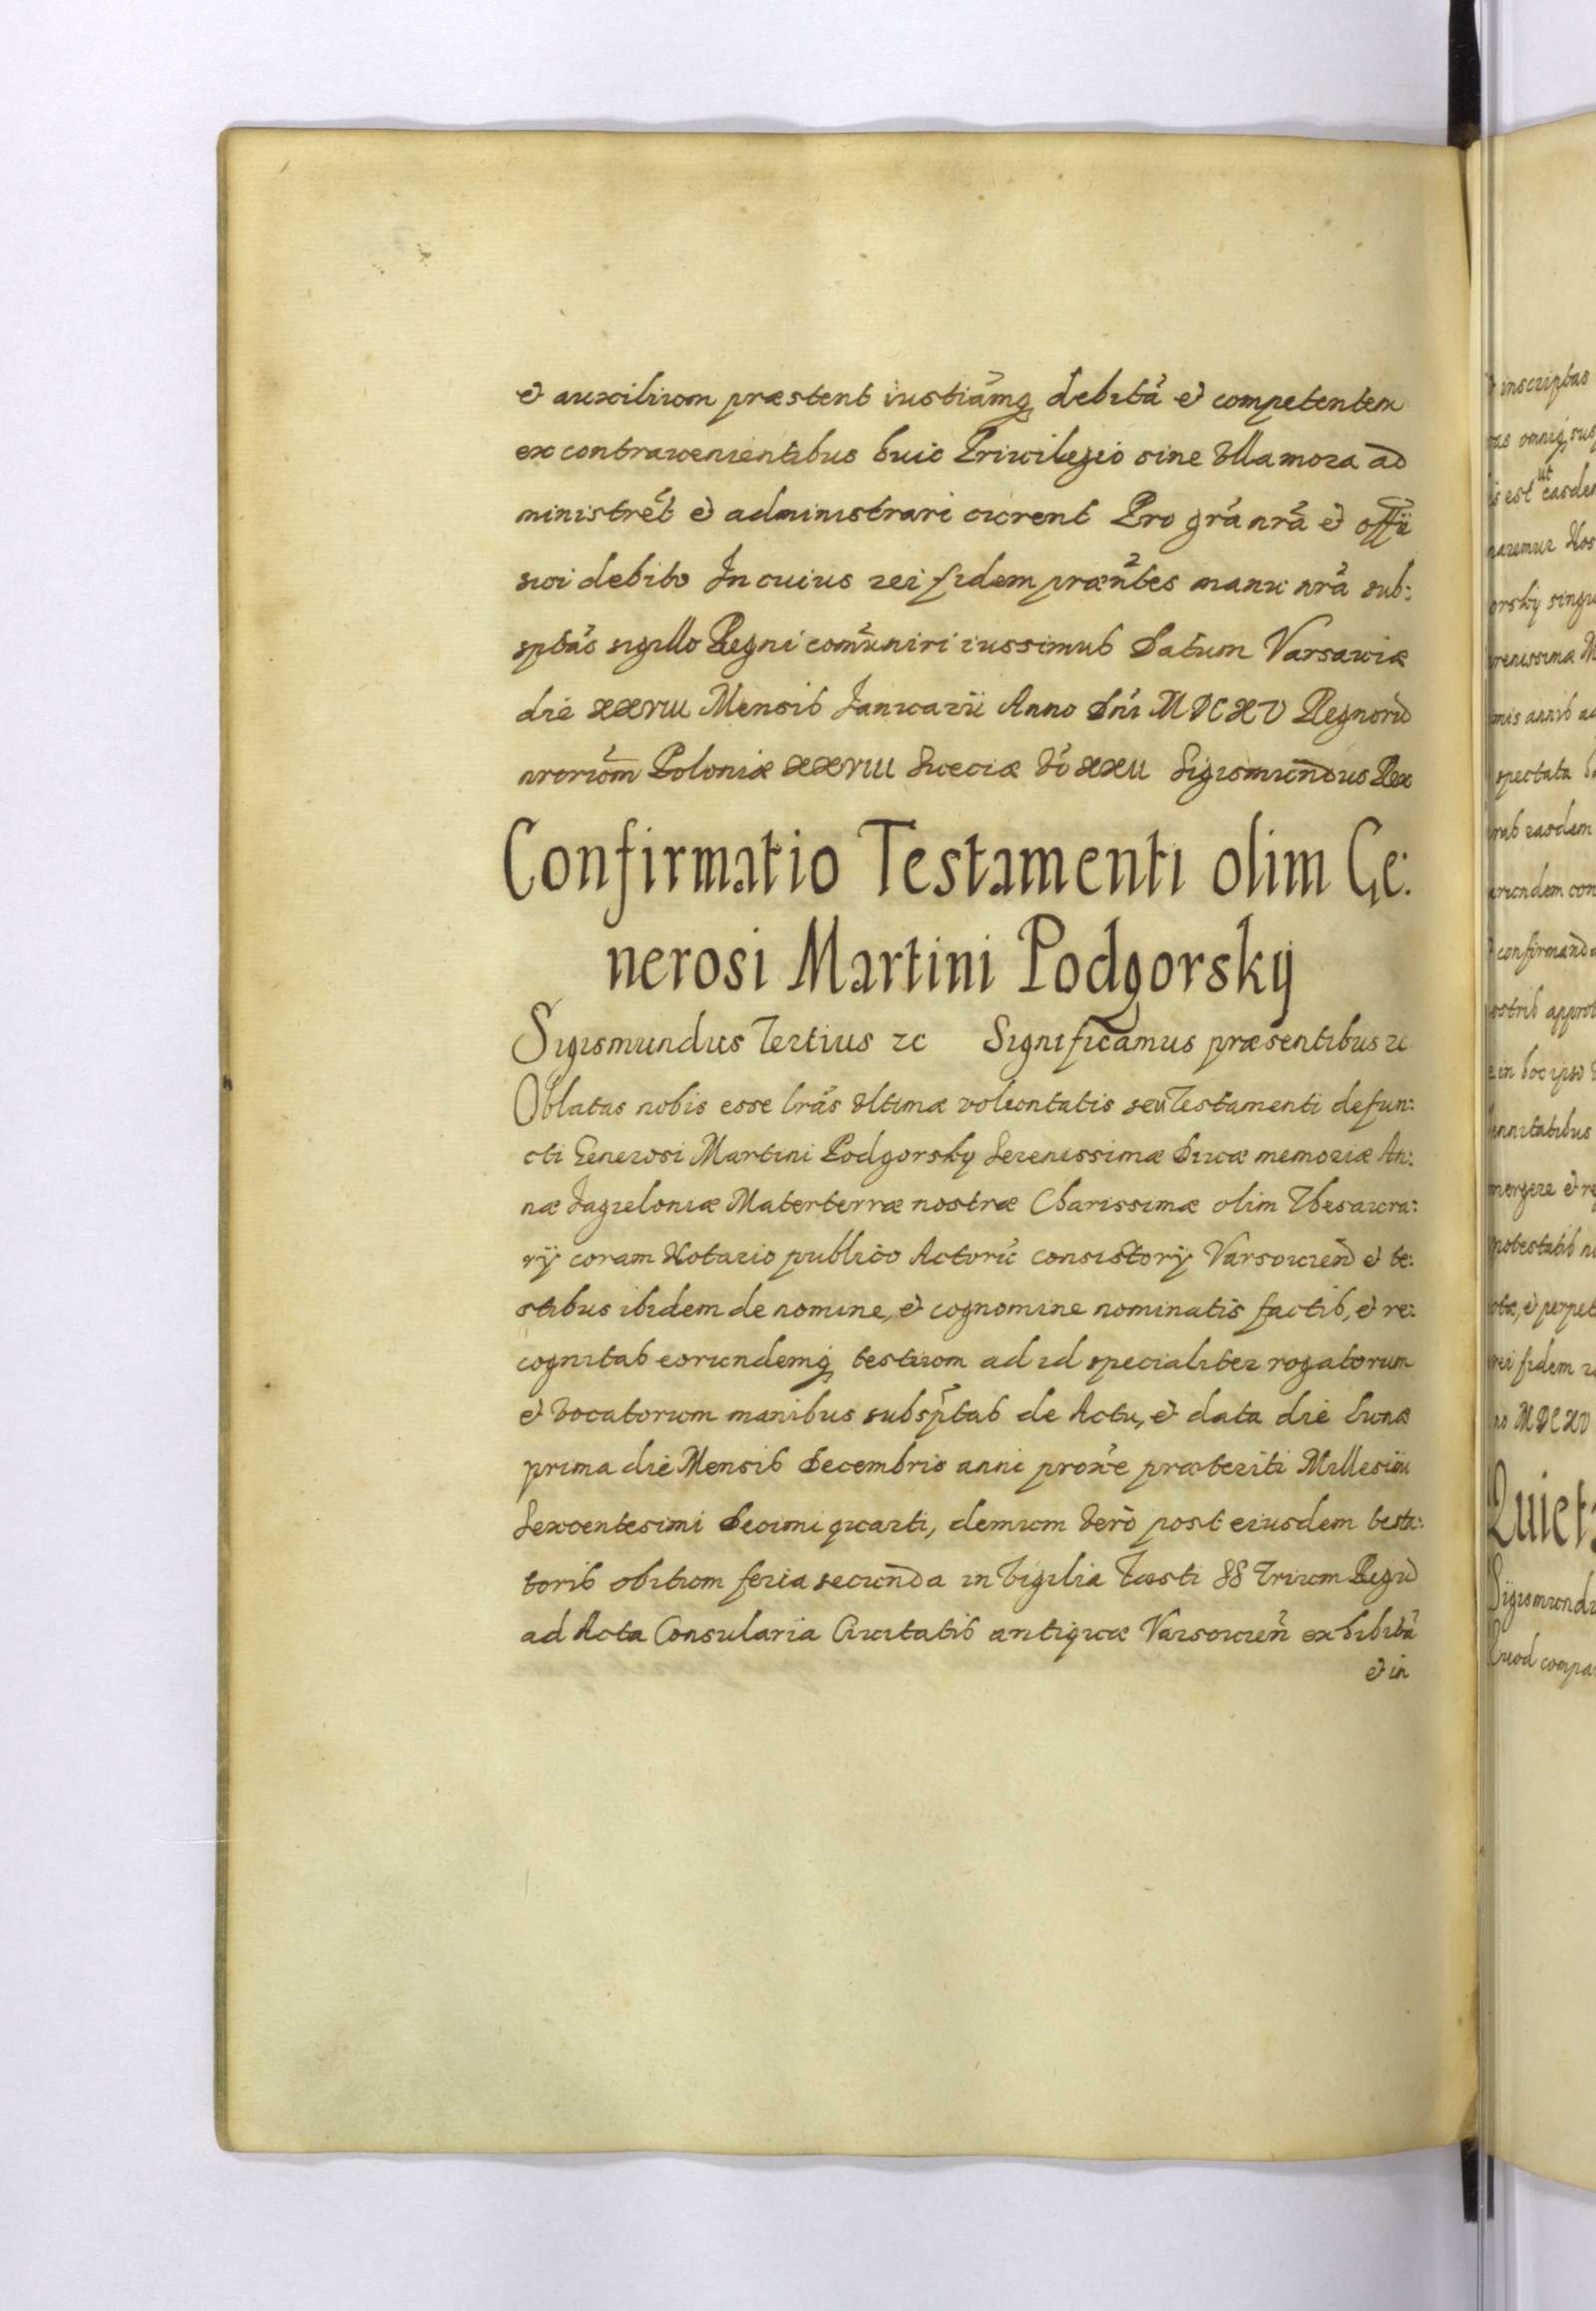 et auxilium præstent iustiamq debitã et competentem
ex contravenientibus huic Privilegio sine Ulla mora ad
ministret et administrari curent Pro gra nra et offii
sui debito In cuius rei fidem præntes manu nra sub:
sptas sigillo Regni comuniri iussimus Datum Varsaviæ
die XXVIII Mensis Januarii Anno Dni MDCXV Regnorũ
nrorũm Poloniæ XXVIII Sueciæ Vo XXII Sigismundus Rex
Confirmatio Testamenti olim Ge:
nerosi Martini Podgorsky
Sigismundus Tertius ec Significamus præsentibus ec
Oblatas nobis esse lras Ultimæ voluntatis seu Testamenti defun:
cti Generosi Martini Podgorsky Serenissimæ Divæ memoriæ An:
næ Jagieloniæ Materterræ nostræ Charissimæ olim Thesaura:
rij coram Notario publico Actorũ consistorij Varsovien et te:
stibus ibidem de nomine, et cognomine nominatis factis, et re:
cognitas eorundemq testium ad id specialiter rogatorum
et Vocatorum manibus subsptas de Actu, et data die Lunæ
prima die Mensis Decembris anni proxe præteriti Millesimi
Sexcentesimi Decimi quarti, demum Vero post eiusdem testa:
toris obitum feria secunda in Vigilia Festi SS Trium Regũ
ad Acta Consularia Civitatis antiquæ Varsovien exhibitã
et in
inscriptas
est ut easdem
naremur Nos
orsky singu
renissima M
spectata
easdem
undem con
confirmand
ostris appro
in hoc ipso
mergere et re
potestatis n
et perpet
rei fidem
MDCXV
Quiet
Sigismundu
Quod compa